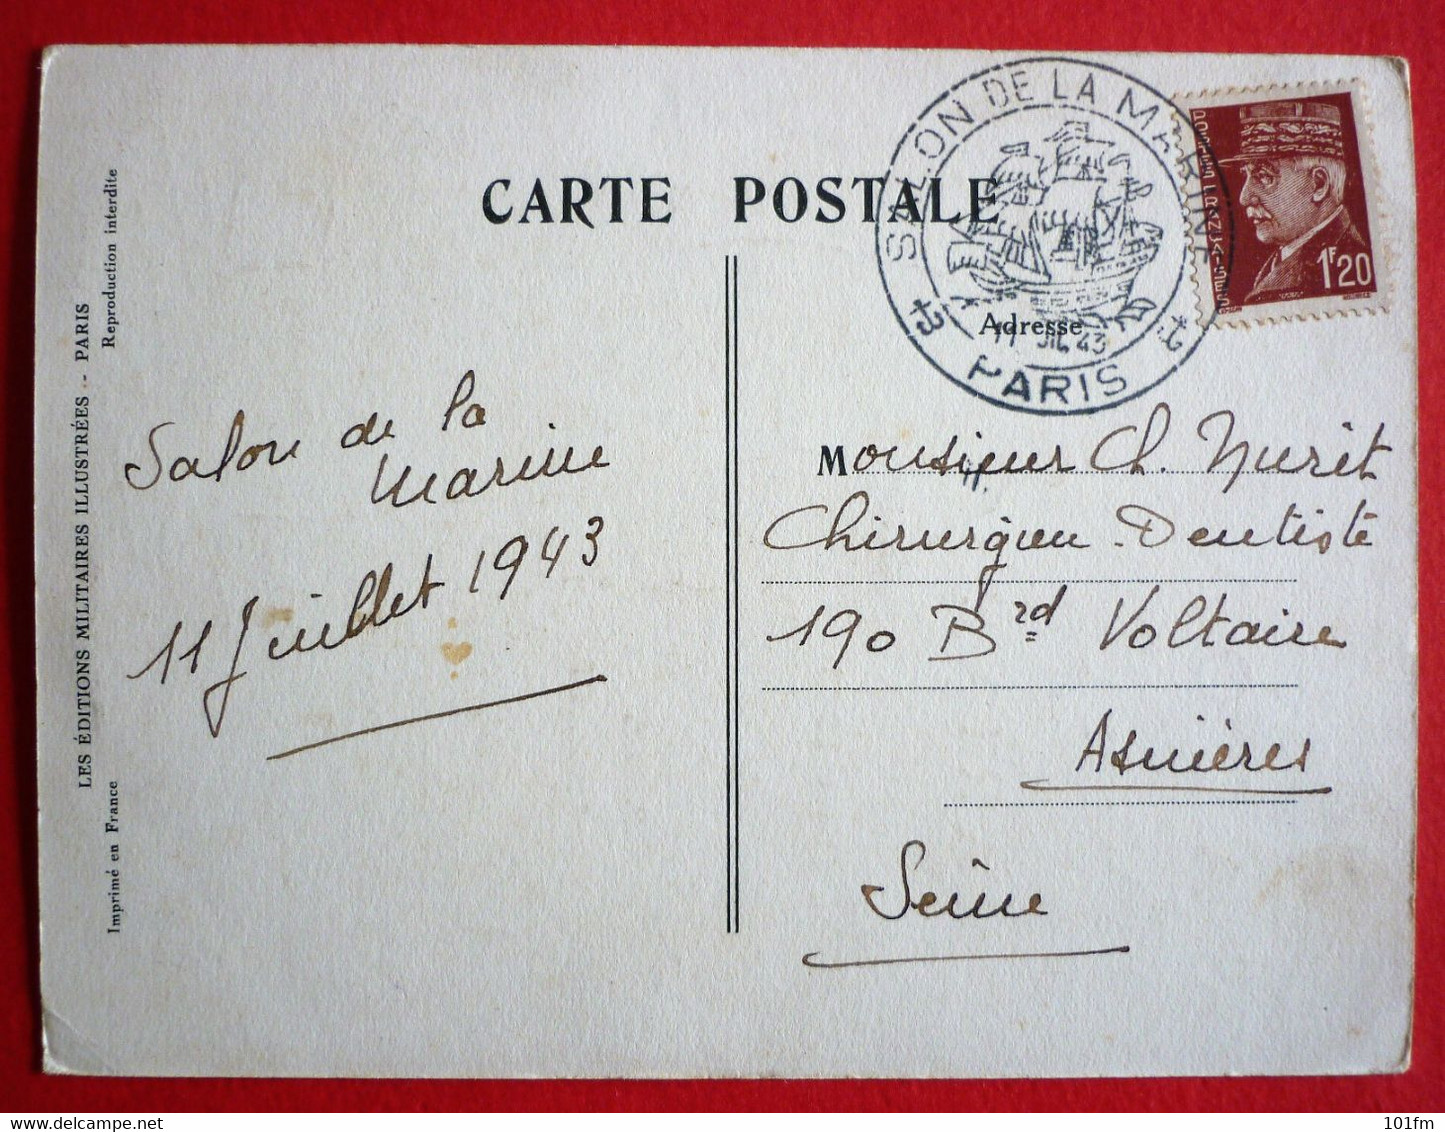 CARTE POSTALE
SALON DE LA MARINE
11 JUL 43
PARIS
POSTES FRANÇAISES
1F20
Adresse
Salon de la
Marine
11 Juillet 1943
Monsieur Ch. Nurit
Chirurgien-Dentiste
190 Brd Voltaire
Asnières
Seine
LES ÉDITIONS MILITAIRES ILLUSTRÉES - PARIS
Imprimé en France
Reproduction interdite
101fm